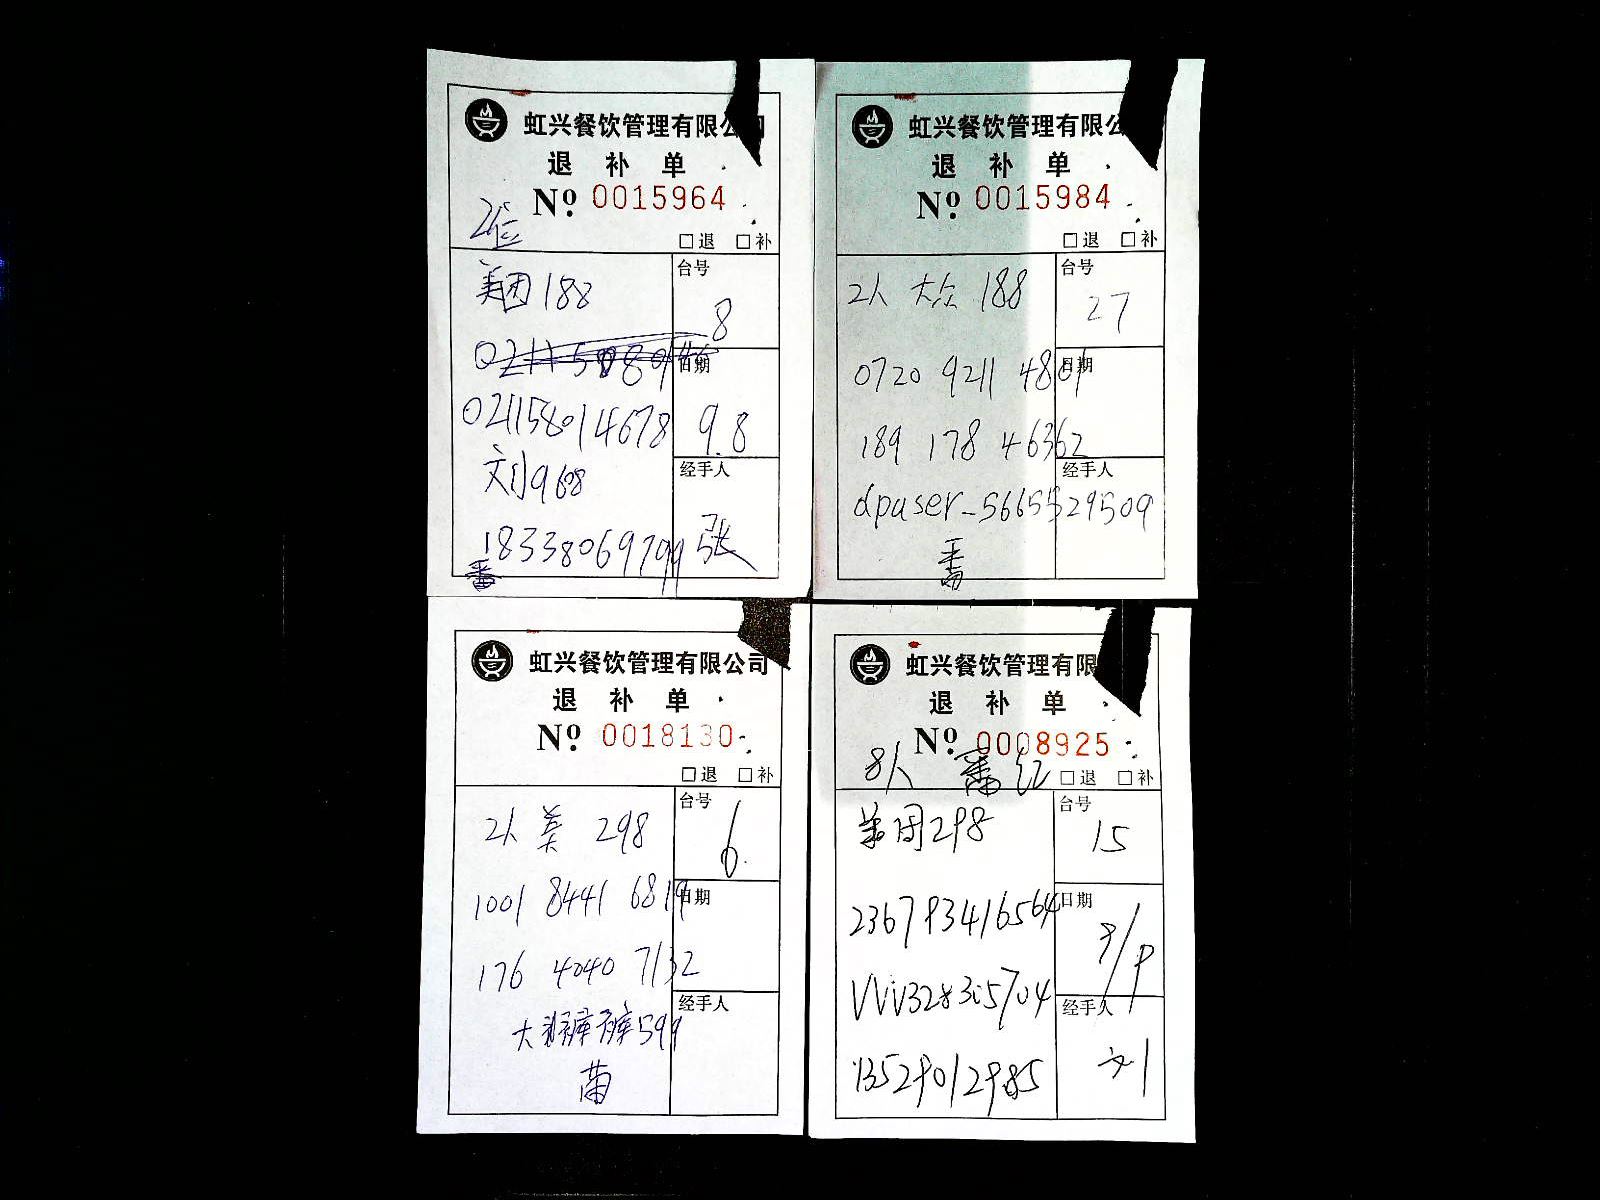 虹兴餐饮管理有限公司
退 补 单
№ 0015964
2位
□退 □补
美团188
台号
8
日期
021158014678
9.8
刘968
经手人
18338069799
张
番
虹兴餐饮管理有限公
退 补 单
№ 0015984
□退 □补
2人 大众 188
台号
27
0720 9211 4801
日期
189 178 46362
经手人
dpuser-5665529509
番
虹兴餐饮管理有限公司
退 补 单
№ 0018130
□退 □补
2人 美 298
台号
6
1001 8441 6819
日期
176 4040 7132
经手人
大 裤裤599
番
虹兴餐饮管理有限
退 补 单
№ 0008925
8人 番 红
□退 □补
美团298
台号
15
236793416564
日期
9/9
VVV328305704
经手人
13529012985
刘